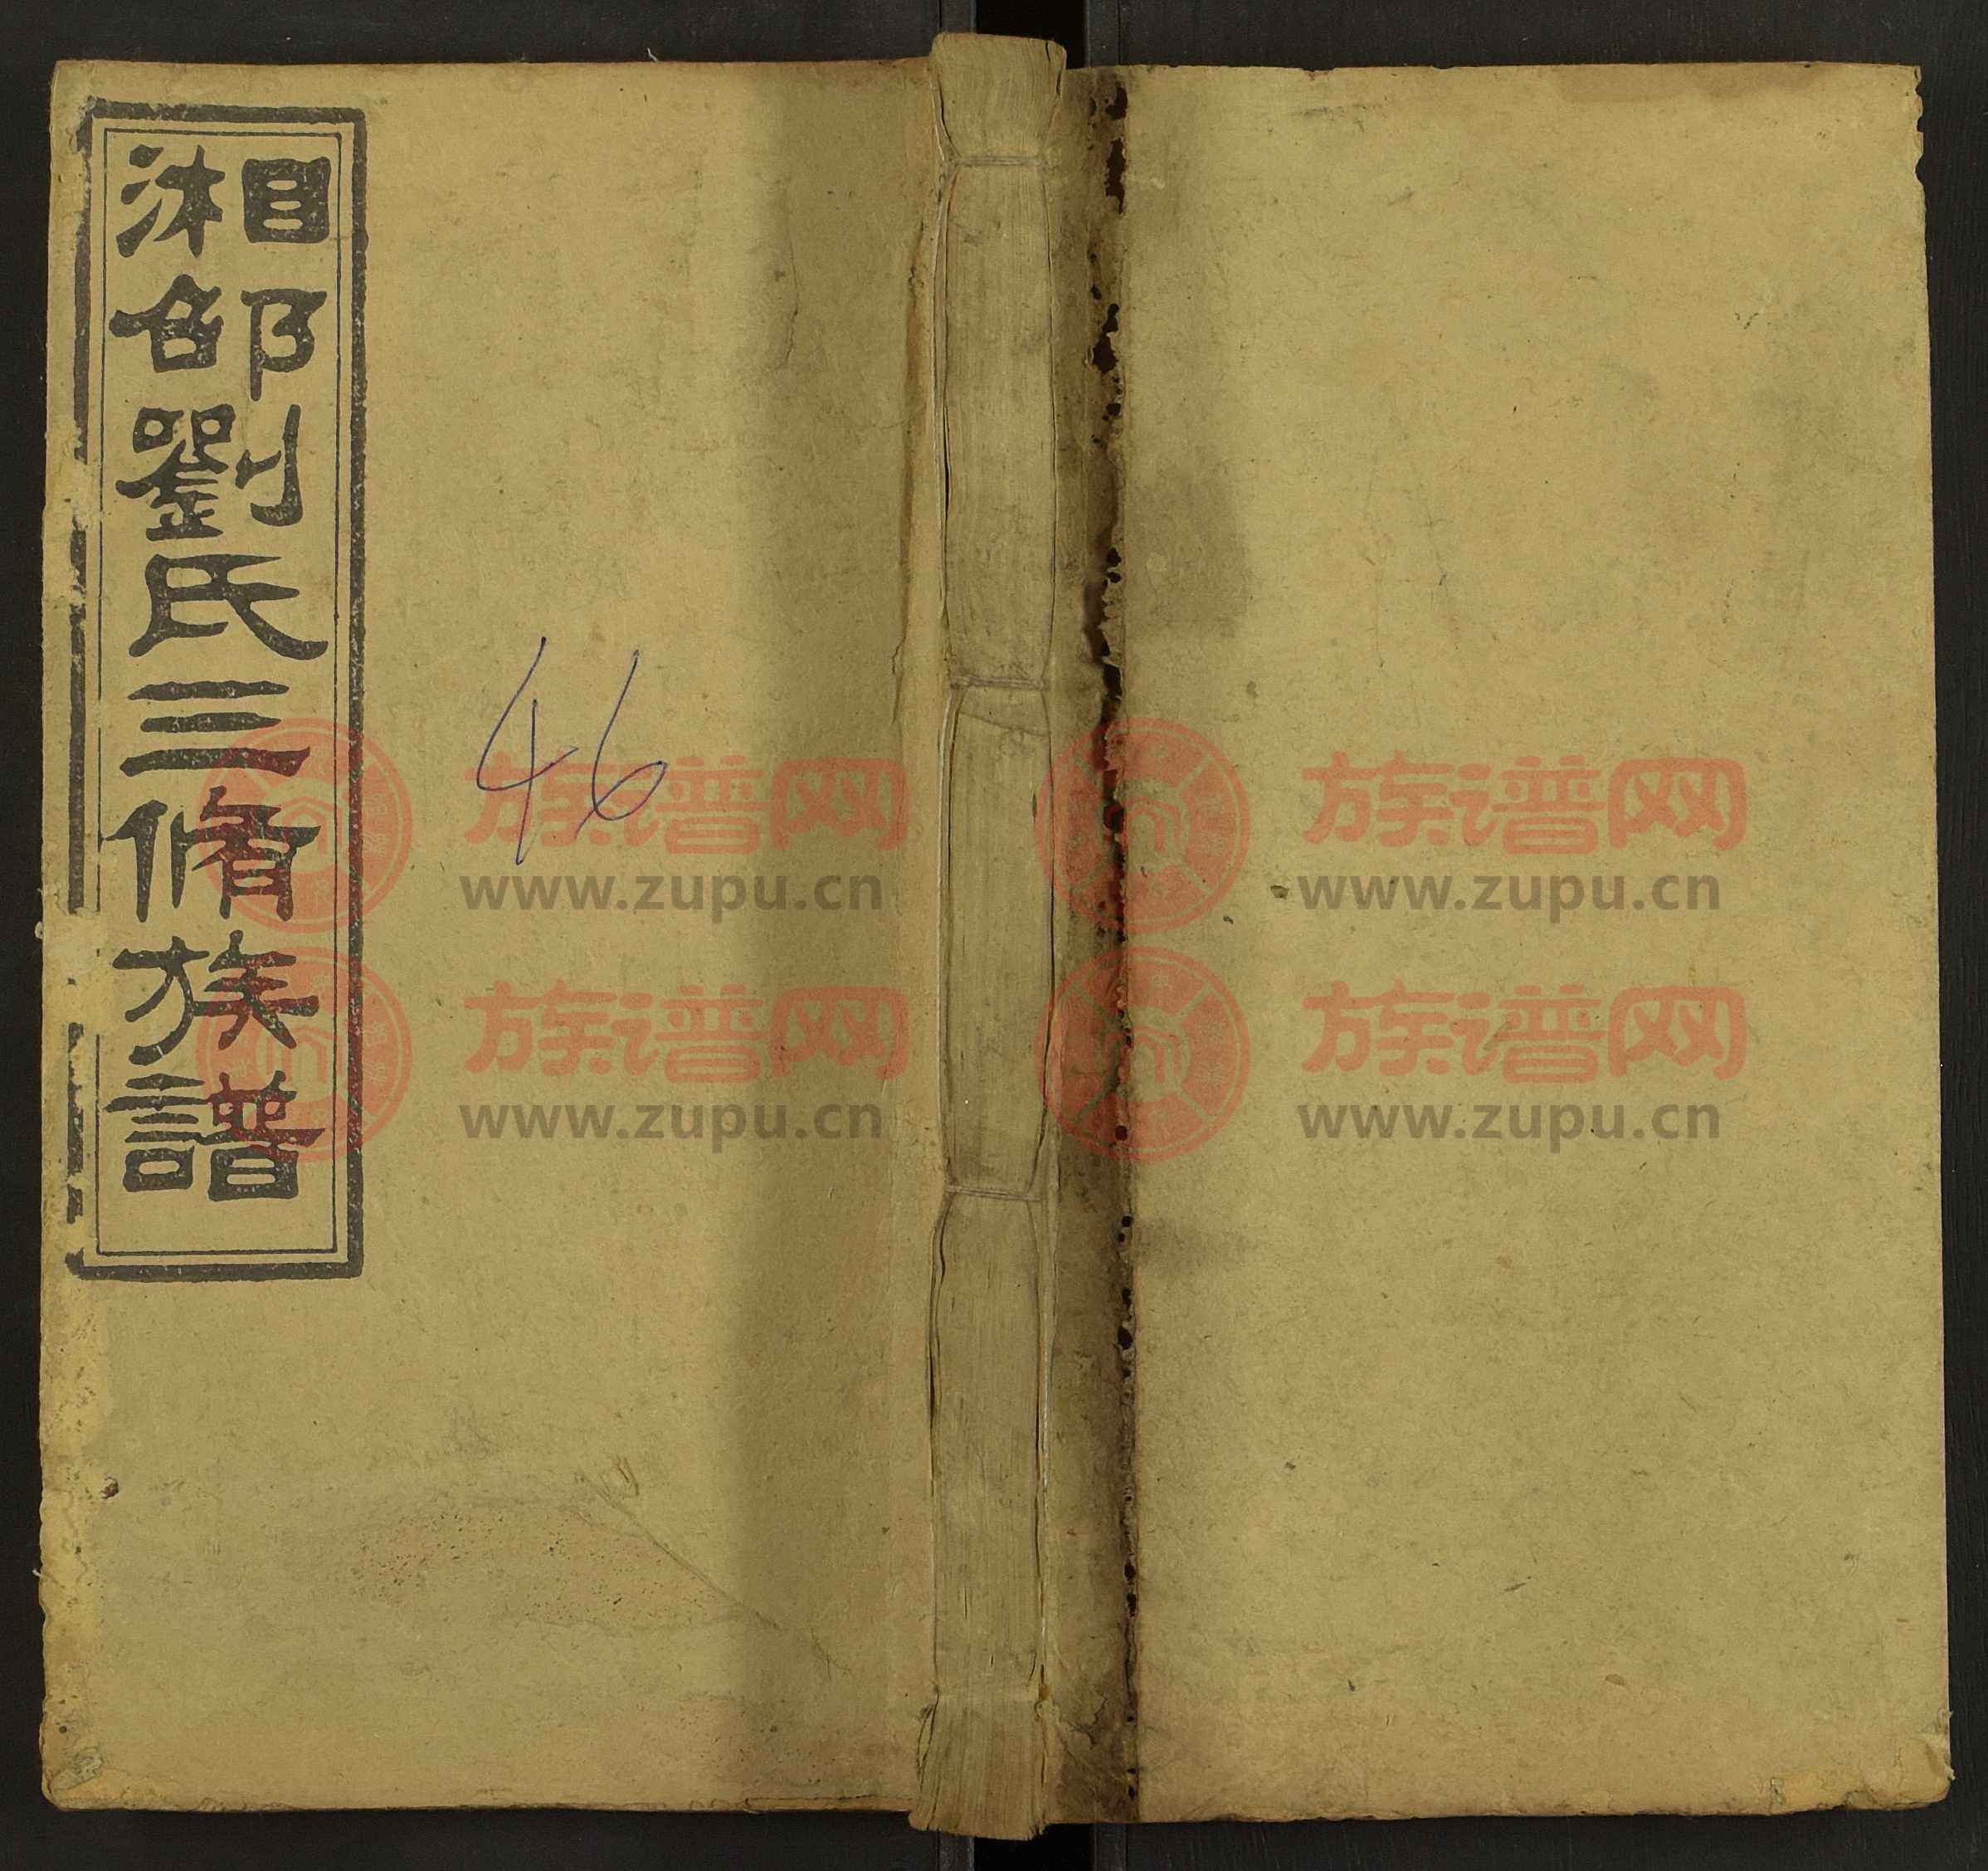 湘邵劉氏三脩族譜
46
族谱网
www.zupu.cn
族谱网
www.zupu.cn
族谱网
www.zupu.cn
族谱网
www.zupu.cn